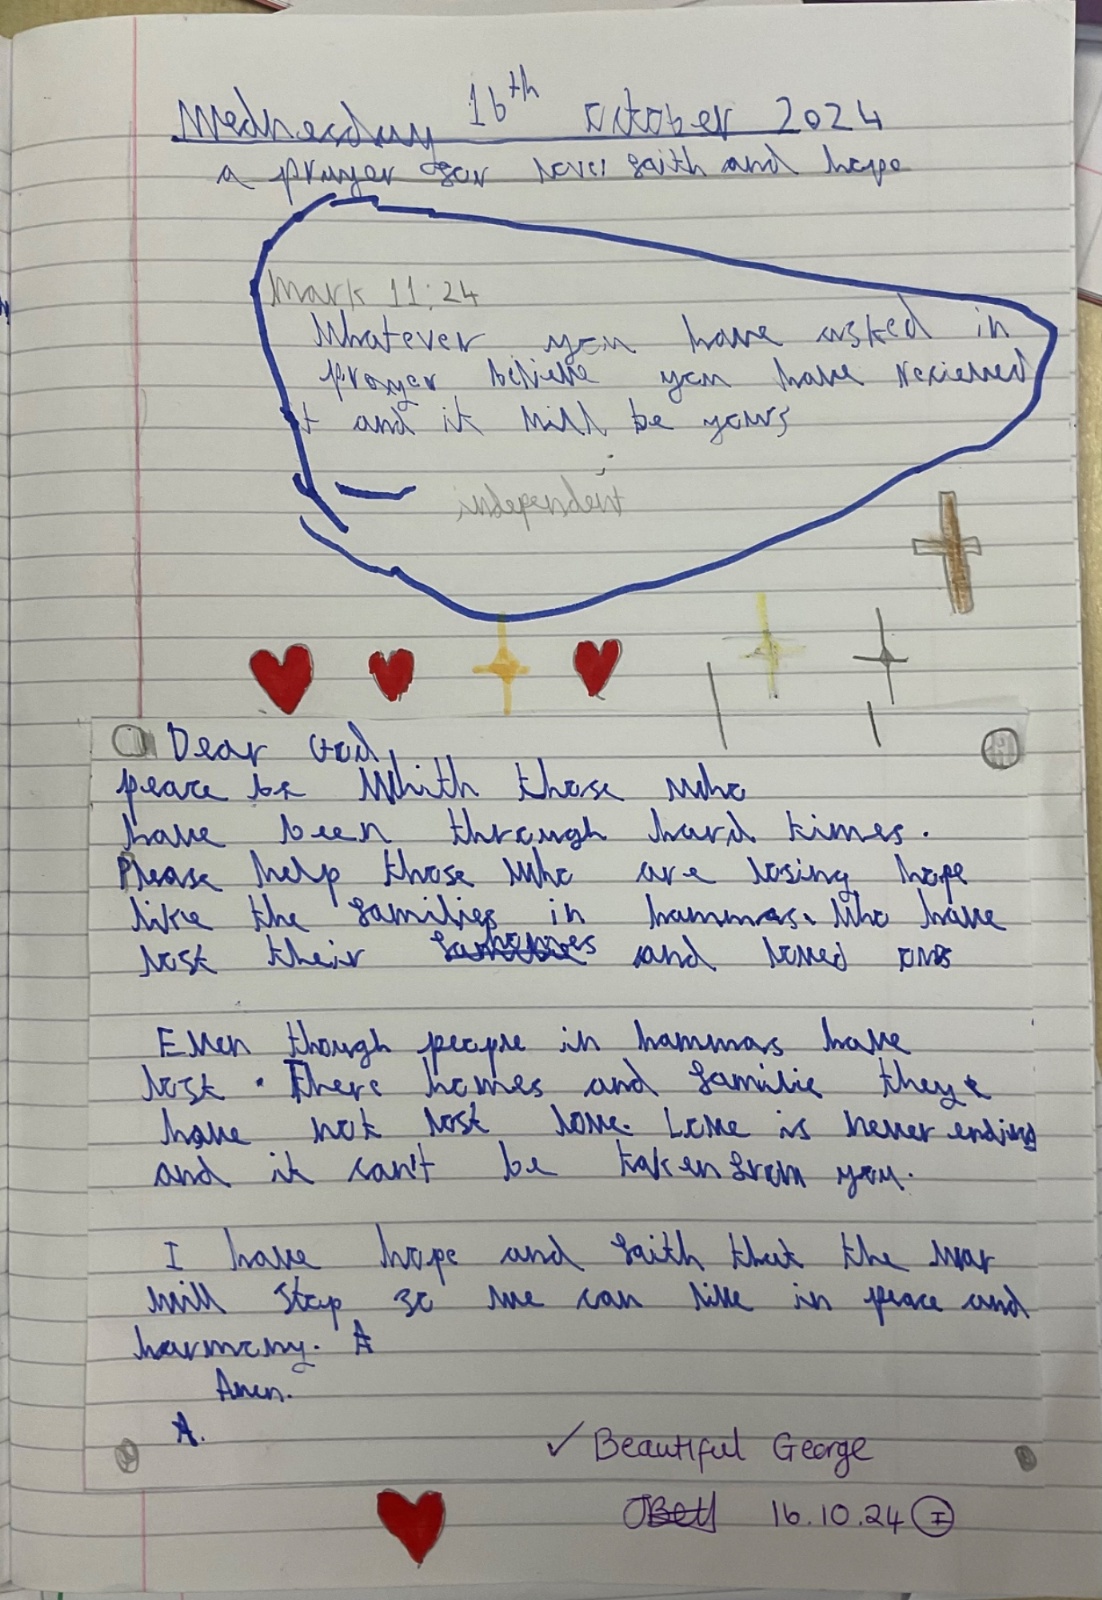 Wednesday 16th October 2024
a prayer for love, faith and hope
Mark 11:24
Whatever you have asked in
prayer believe you have recieved
it and it will be yours
independent
Dear God,
peace be Whith those who
have been through hard times.
Please help those who are losing hope
like the families in hammas. Who have
lost their homes and loved ons
Even though people in hammas have
lost. There homes and familie they
have not lost love. Love is never ending
and it can't be taken from you.
I have hope and faith that the war
will stop so we can live in peace and
harmony. A
Amen.
A.
✓ Beautiful George
16.10.24 I